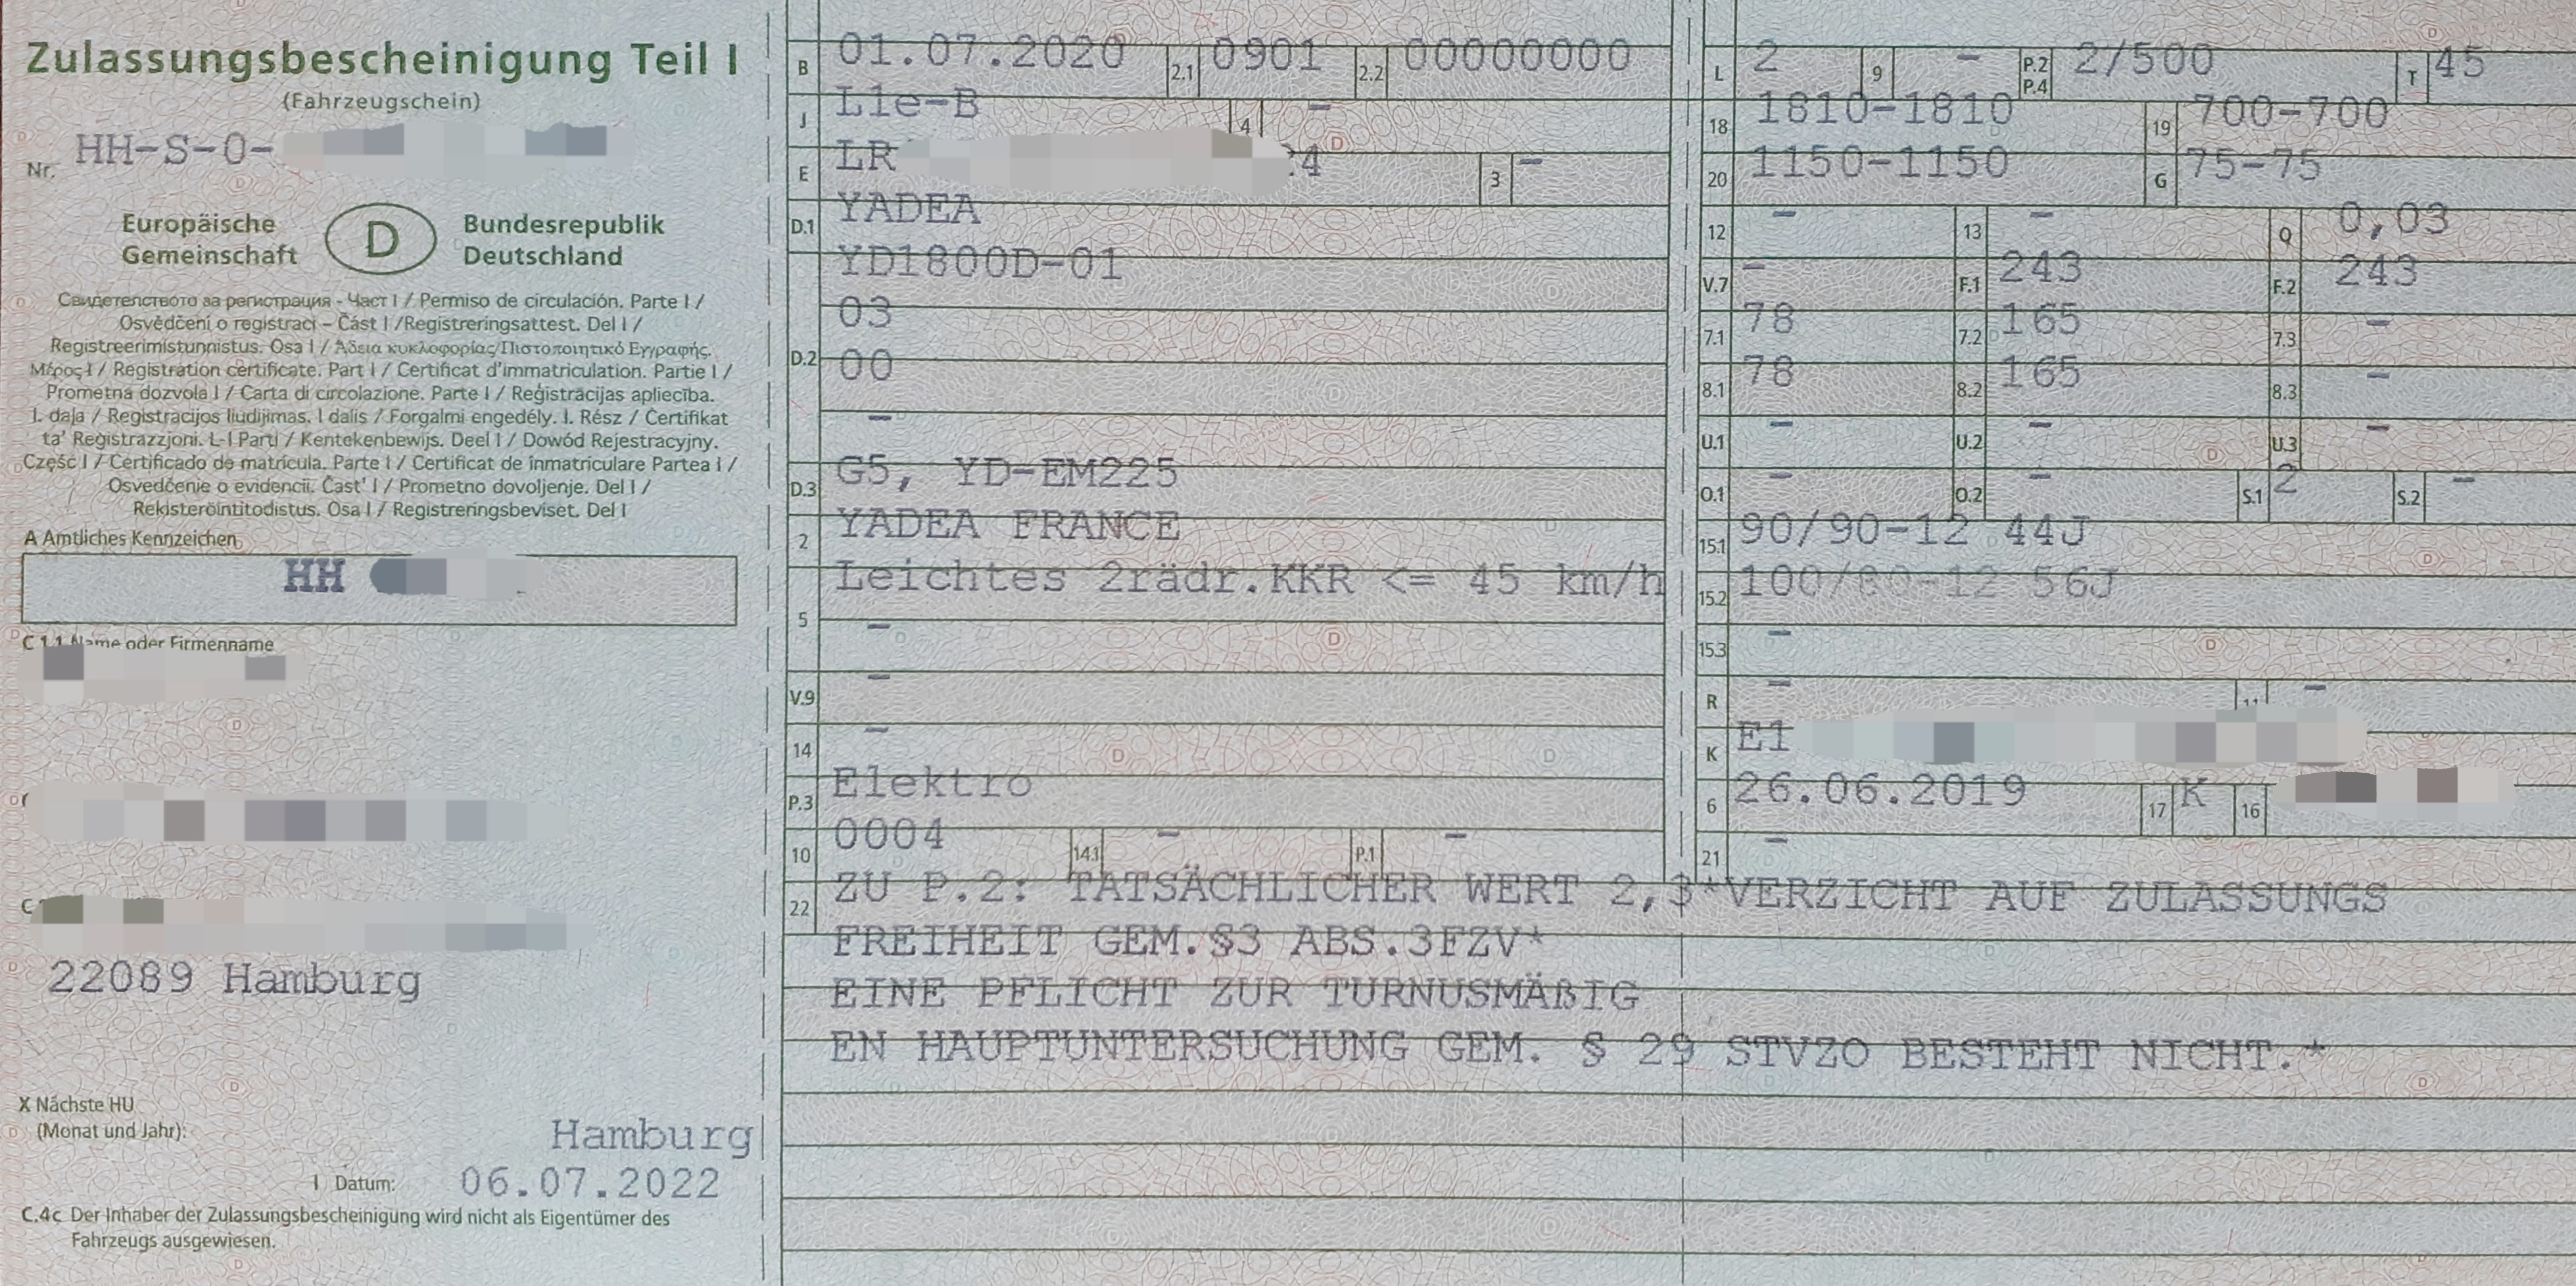 Zulassungsbescheinigung Teil I
(Fahrzeugschein)
Nr. HH-S-O-
Europäische Gemeinschaft
D
Bundesrepublik Deutschland
Свидетелството за регистрация - Част I / Permiso de circulación. Parte I /
Osvědčení o registraci – Část I /Registreringsattest. Del I /
Registreerimistunnistus. Osa I / Άδεια κυκλοφορίας/Πιστοποιητικό Εγγραφής.
Μέρος I / Registration certificate. Part I / Certificat d'immatriculation. Partie I /
Prometna dozvola I / Carta di circolazione. Parte I / Reģistrācijas apliecība.
I. daļa / Registracijos liudijimas. I dalis / Forgalmi engedély. I. Rész / Ċertifikat
ta' Reġistrazzjoni. L-I Parti / Kentekenbewijs. Deel I / Dowód Rejestracyjny.
Część I / Certificado de matrícula. Parte I / Certificat de înmatriculare Partea I /
Osvedčenie o evidencii. Časť I / Prometno dovoljenje. Del I /
Rekisteröintitodistus. Osa I / Registreringsbeviset. Del I
A Amtliches Kennzeichen
HH
C 1.1 Name oder Firmenname
22089 Hamburg
X Nächste HU
(Monat und Jahr):
Hamburg
I Datum: 06.07.2022
C.4c Der Inhaber der Zulassungsbescheinigung wird nicht als Eigentümer des
Fahrzeugs ausgewiesen.
B 01.07.2020 2.1 0901 2.2 00000000
J L1e-B 4 -
E LR 24 3 -
D.1 YADEA
YD1800D-01
03
D.2 00
-
D.3 G5, YD-EM225
2 YADEA FRANCE
Leichtes 2rädr.KKR <= 45 km/h
5 -
V.9 -
14 -
P.3 Elektro
10 0004 14.1 - P.1 -
L 2 9 - P.2 P.4 2/500 T 45
18 1810-1810 19 700-700
20 1150-1150 G 75-75
12 - 13 - Q 0,03
V.7 - F.1 243 F.2 243
7.1 78 7.2 165 7.3 -
8.1 78 8.2 165 8.3 -
U.1 - U.2 - U.3 -
O.1 - O.2 - S.1 2 S.2 -
15.1 90/90-12 44J
15.2 100/80-12 56J
15.3 -
R - 11 -
K E1
6 26.06.2019 17 K 16
21 -
22 ZU P.2: TATSÄCHLICHER WERT 2,3*VERZICHT AUF ZULASSUNGS
FREIHEIT GEM.§3 ABS.3FZV*
EINE PFLICHT ZUR TURNUSMÄßIG
EN HAUPTUNTERSUCHUNG GEM. § 29 STVZO BESTEHT NICHT.*